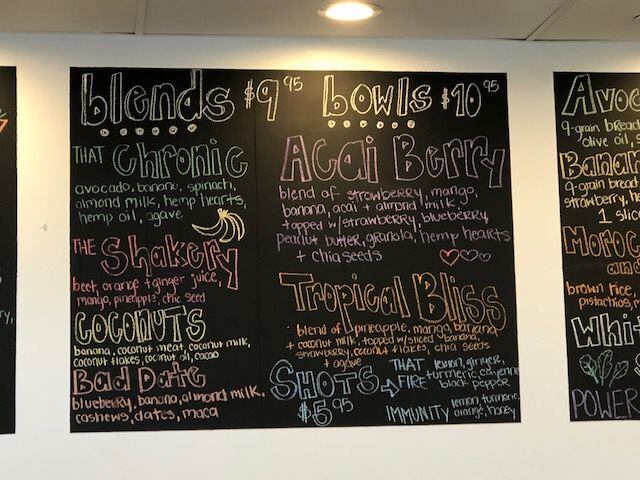 blends $9 95
THAT Chronic
avocado, banana, spinach,
almond milk, hemp hearts,
hemp oil, agave
THE Shakery
beet, orange + ginger juice,
mango, pineapple, chic seed
COCONUTS
banana, coconut meat, coconut milk,
coconut flakes, coconut oil, cacao
Bad Date
blueberry, banana, almond milk,
cashews, dates, maca
bowls $10 95
Acai Berry
blend of strawberry, mango,
banana, acai + almond milk,
topped w/strawberry, blueberry,
peanut butter, granola, hemp hearts
+ chia seeds
Tropical Bliss
blend of pineapple, mango, banana
+ coconut milk, topped w/sliced banana,
strawberry, coconut flakes, chia seeds
+ agave
SHOTS
$5 95
THAT FIRE
lemon, ginger,
turmeric, cayenne
black pepper
IMMUNITY
lemon, turmeric,
orange, honey
Avoc
9-grain bread
olive oil, s
Banan
9-grain bread
strawberry, he
1 slic
Moroc
and
brown rice,
pistachios, r
Whit
POWER